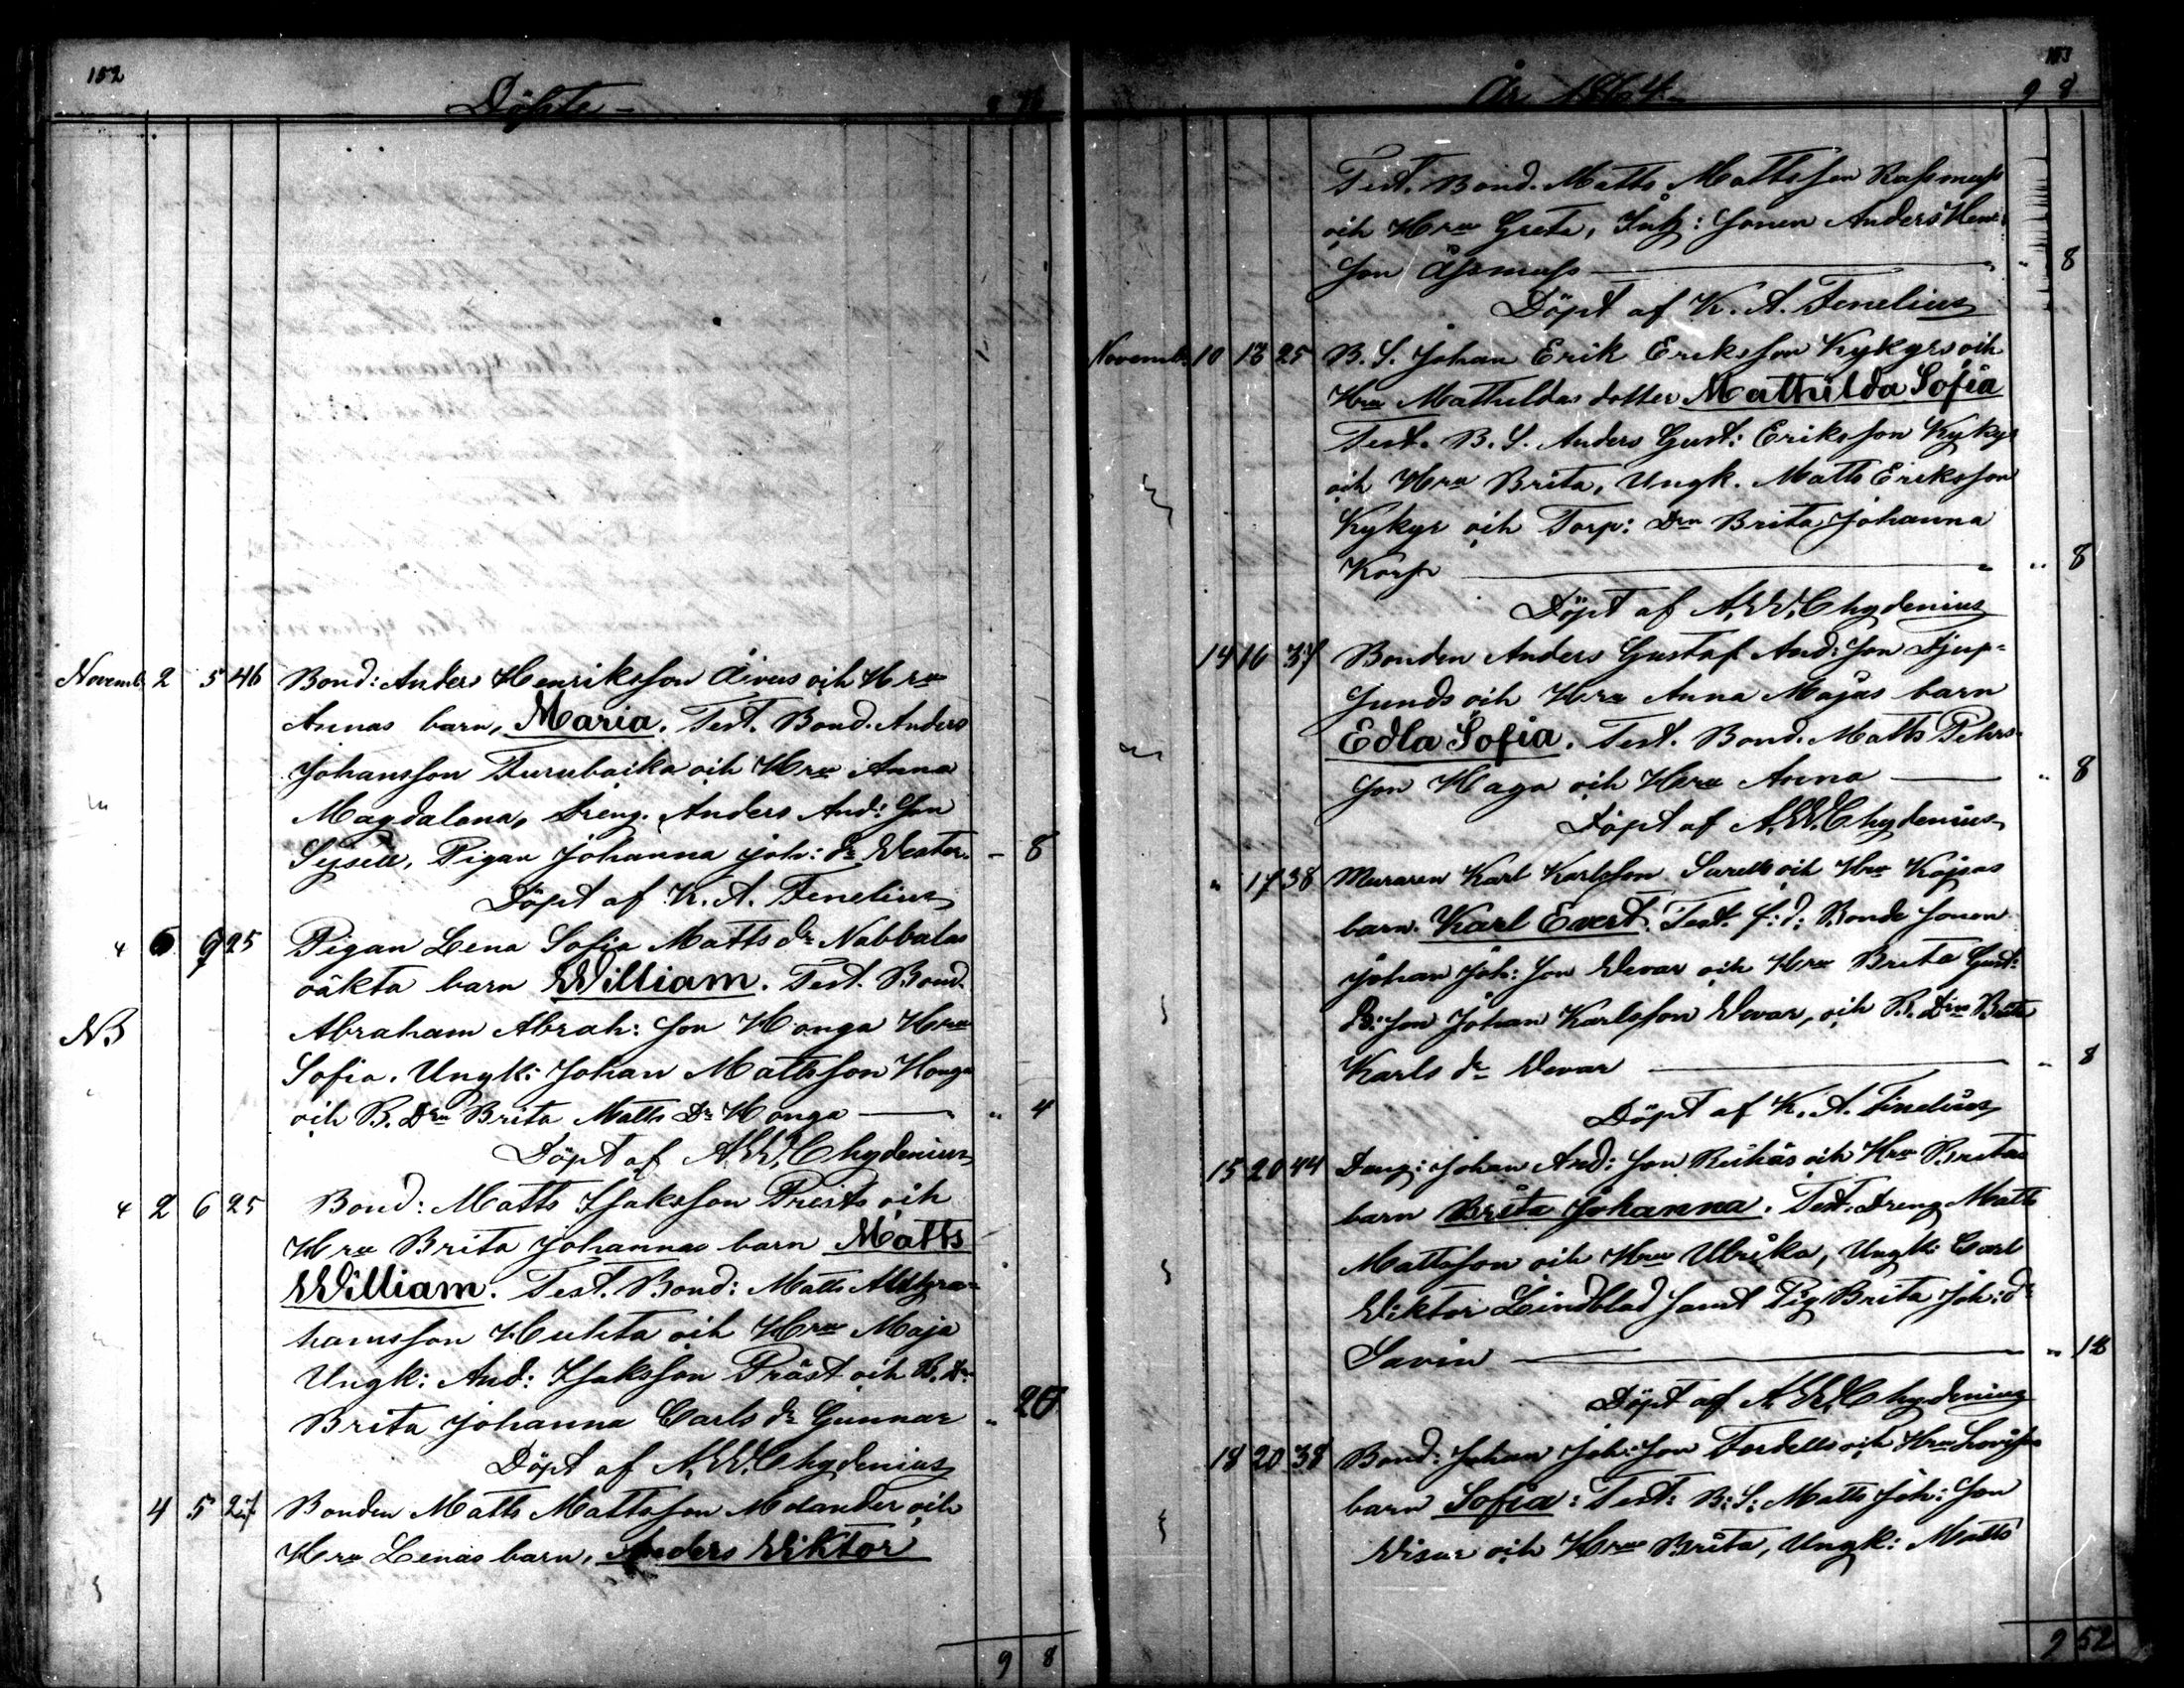 152
Döpte
Novemb. 2 5 46 Bond: Anders Henriksson Åivus och Hru
Annas barn, Maria. Test. Bond. Anders
Johansson Furubacka och Hru Anna
Magdalena, Dreng. Anders And: Son
Pigan Johanna Joh: dr Wester. – 8
Döpt af K. A. Fenelius
6 9 25 Pigan Lena Sofia Matts dr Nabbalas
oäkta barn William. Test. Bond.
Abraham Abrah: Son Honga Hru
Sofia. Ungk: Johan Mattsson Honga
och B. Drn Brita Matts Dr Honga — " 4
Döpt af A. W. Chydenius
2 6 25 Bond: Matts Isaksson Prists och
Hru Brita Johannas barn Matts
William. Test. Bond: Matts Abra-
hamsson Huhta och Hru Maja
Ungk: And: Isaksson Präst och B. Dr:
Brita Johanna Carls dr Gunnar " 20
Döpt af A. W. Chydenius
4 5 27 Bonden Matts Mattsson Molander och
Hru Lenas barn, Anders Wiktor
9 8
153
År 1864.
9 8
Test. Bond. Matts Mattsson Rassmuss
och Hru Greta, Ink: Sonen Anders Hen:
Son Åssmuss — " 8
Döpt af K. A. Fenelius
Novemb. 10 13 25 B. S. Johan Erik Eriksson Kykyrs och
Hru Mathildas dotter Mathilda Sofia
Test. B. S. Anders Gust: Eriksson Kykyr
och Hru Brita, Ungk. Matts Eriksson
Kykyr och Torp: Drn Brita Johanna
Korp — " 8
Döpt af A. W. Chydenius
14 16 37 Bonden Anders Gustaf And: Son Djup-
sunds och Hru Anna Majas barn
Edla Sofia. Test. Bond. Matts Pehrs-
Son Haga och Hru Anna — " 8
Döpt af A. W. Chydenius
" 17 38 Muraren Karl Karlsson Sarells och Hru Kajsas
barn. Karl Evert. Test. f: d: Bonde Sonen
Johan Joh: Son Wevar och Hru Brita Gust:
B: Son Johan Karlsson Wevar, och B. Drn Brita
Karls dr Wevar — " 8
Döpt af K. A. Finelius
15 20 44 Dreng: Johan And: Son och Hru Britas
barn Brita Johanna. Test. Dreng Matts
Mattsson och Hru Ulrika, Ungk: Carl
Wiktor Lindblad samt Pig Brita Joh: dr
Savin — " 12
Döpt af A. W. Chydenius
18 20 38 Bond: Johan Joh: Son Fordells och Hru Lovisas
barn Sofia: Test: B: S: Matts Joh: Son
Wisur och Hru Brita, Ungk: Matts
9 52